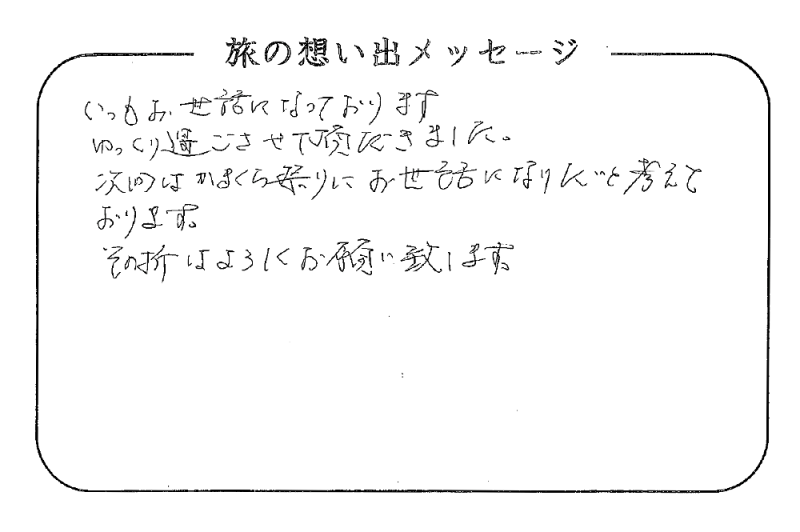 旅の想い出メッセージ
いつもお世話になっております
ゆっくり過ごさせて頂だきました。
次回はかまくら祭りにお世話になりたいと考えて
おります。
その折はよろしくお願い致します。